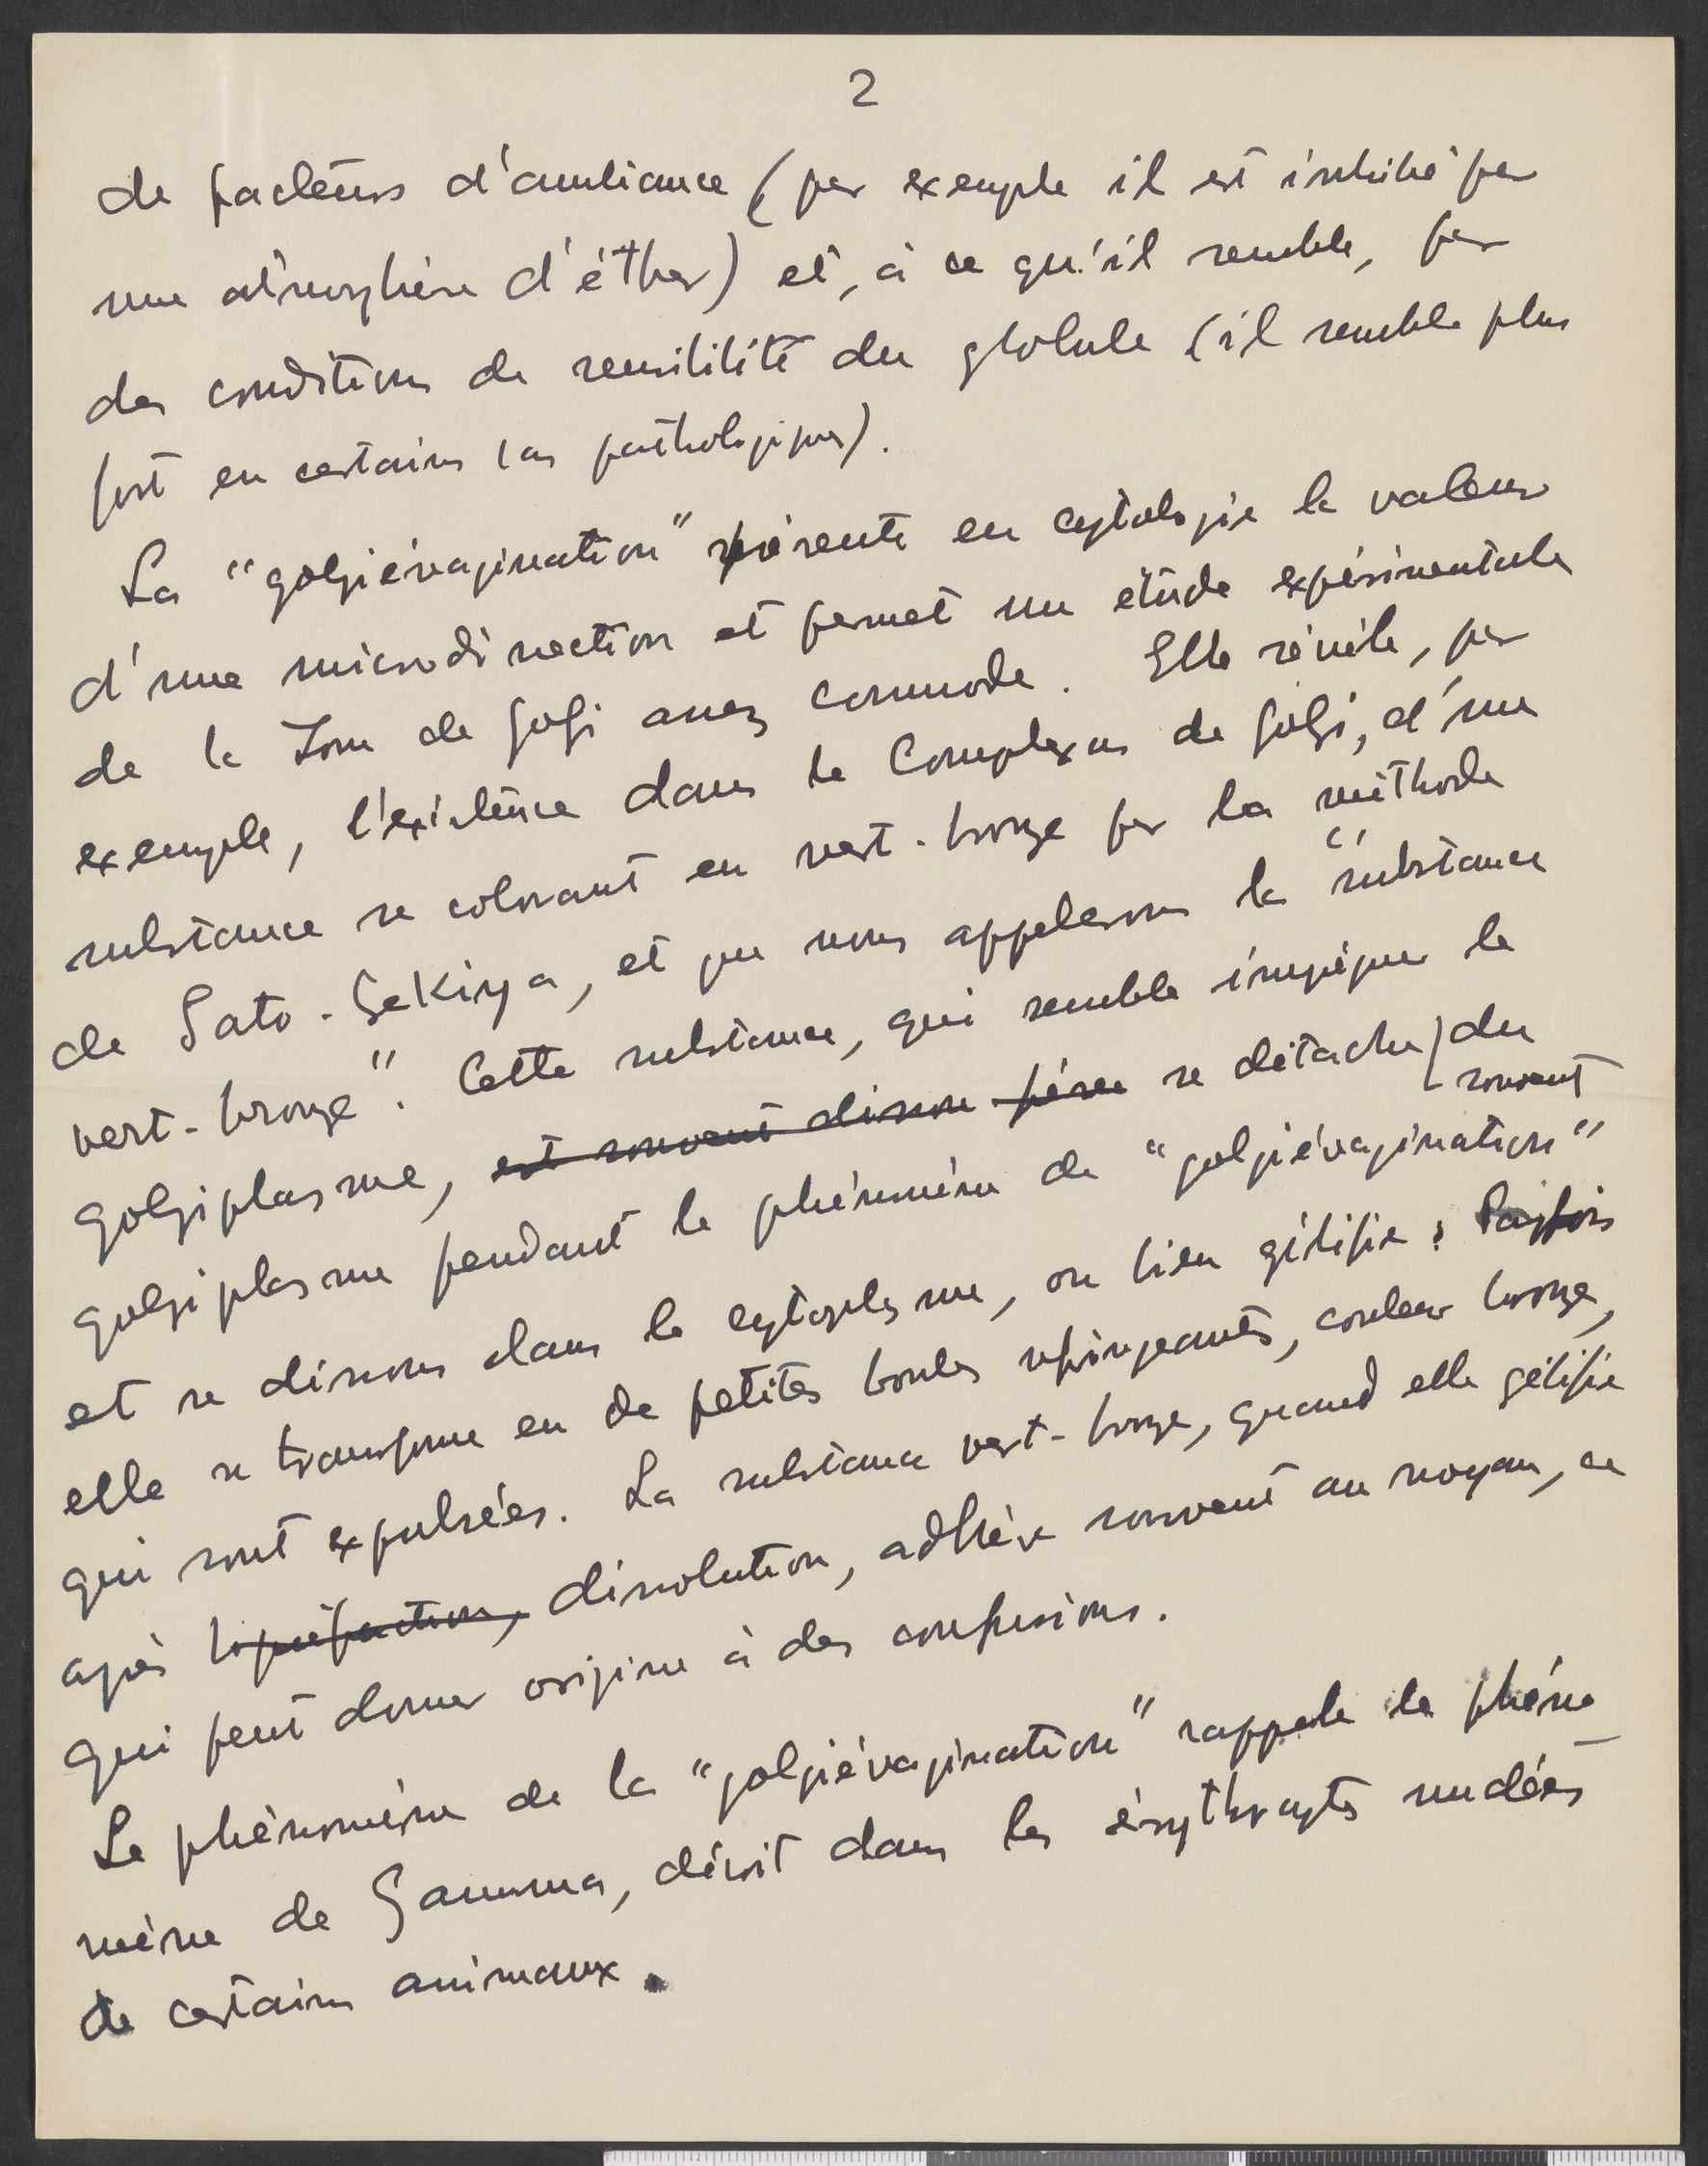 2
de facteurs d'ambiance (par exemple il est inhibé par
une atmosphère d'éther) et, à ce qu'il semble, par
des conditions de sensibilité du globule (il semble plus
fort en certains cas pathologiques).
La "golgiévagination" présente en cytologie la valeur
d'une microdissection et permet une étude expérimentale
de la zone de Golgi assez commode. Elle révèle, par
exemple, l'existence dans le Complexus de Golgi, d'une
substance se colorant en vert-bronze par la méthode
de Sato-Sekiya, et que nous appelerons la "substance
vert-bronze". Cette substance, qui semble imprégner le
golgiplasme, est souvent dissou se détache souvent du
golgiplasme pendant le phénomène de "golgiévagination"
et se dissous dans le cytoplasme, ou bien gélifie; Parfois
elle se transforme en de petites boules refringeantes, couleur bronze,
qui sont expulsées. La substance vert-bronze, quand elle gélifie
après liquéfaction, dissolution, adhère souvent au noyau, ce
qui peut donner origine à des confusions.
Le phénomène de la "golgiévagination" rappele le phéno
mène de Gamma, décrit dans les érythrocytes nucléés
de certains animaux.